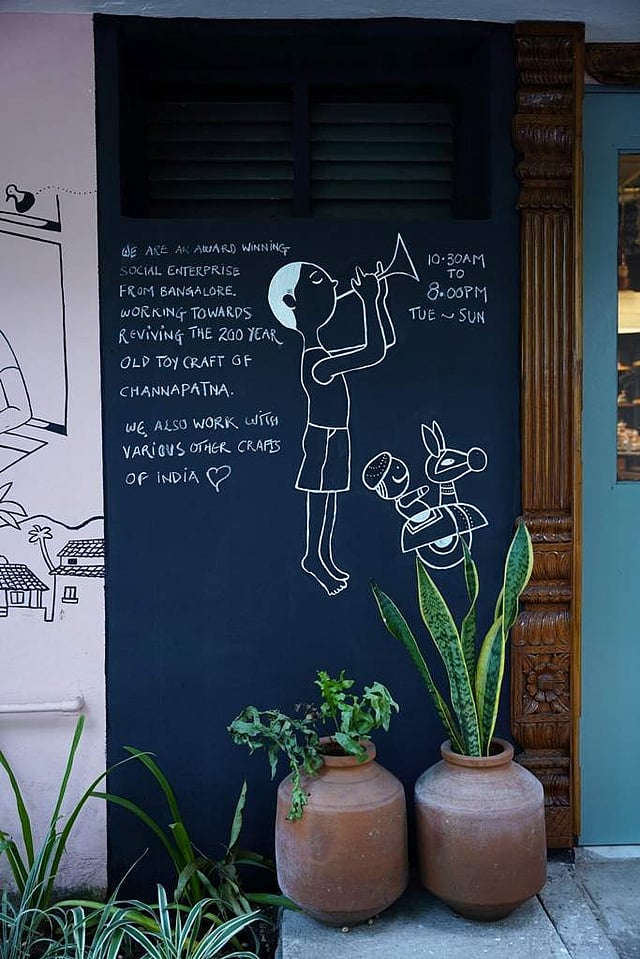 WE ARE AN AWARD WINNING
SOCIAL ENTERPRISE
FROM BANGALORE.
WORKING TOWARDS
REVIVING THE 200 YEAR
OLD TOY CRAFT OF
CHANNAPATNA.
WE ALSO WORK WITH
VARIOUS OTHER CRAFTS
OF INDIA ♡
10·30AM
TO
8·00PM
TUE ~ SUN